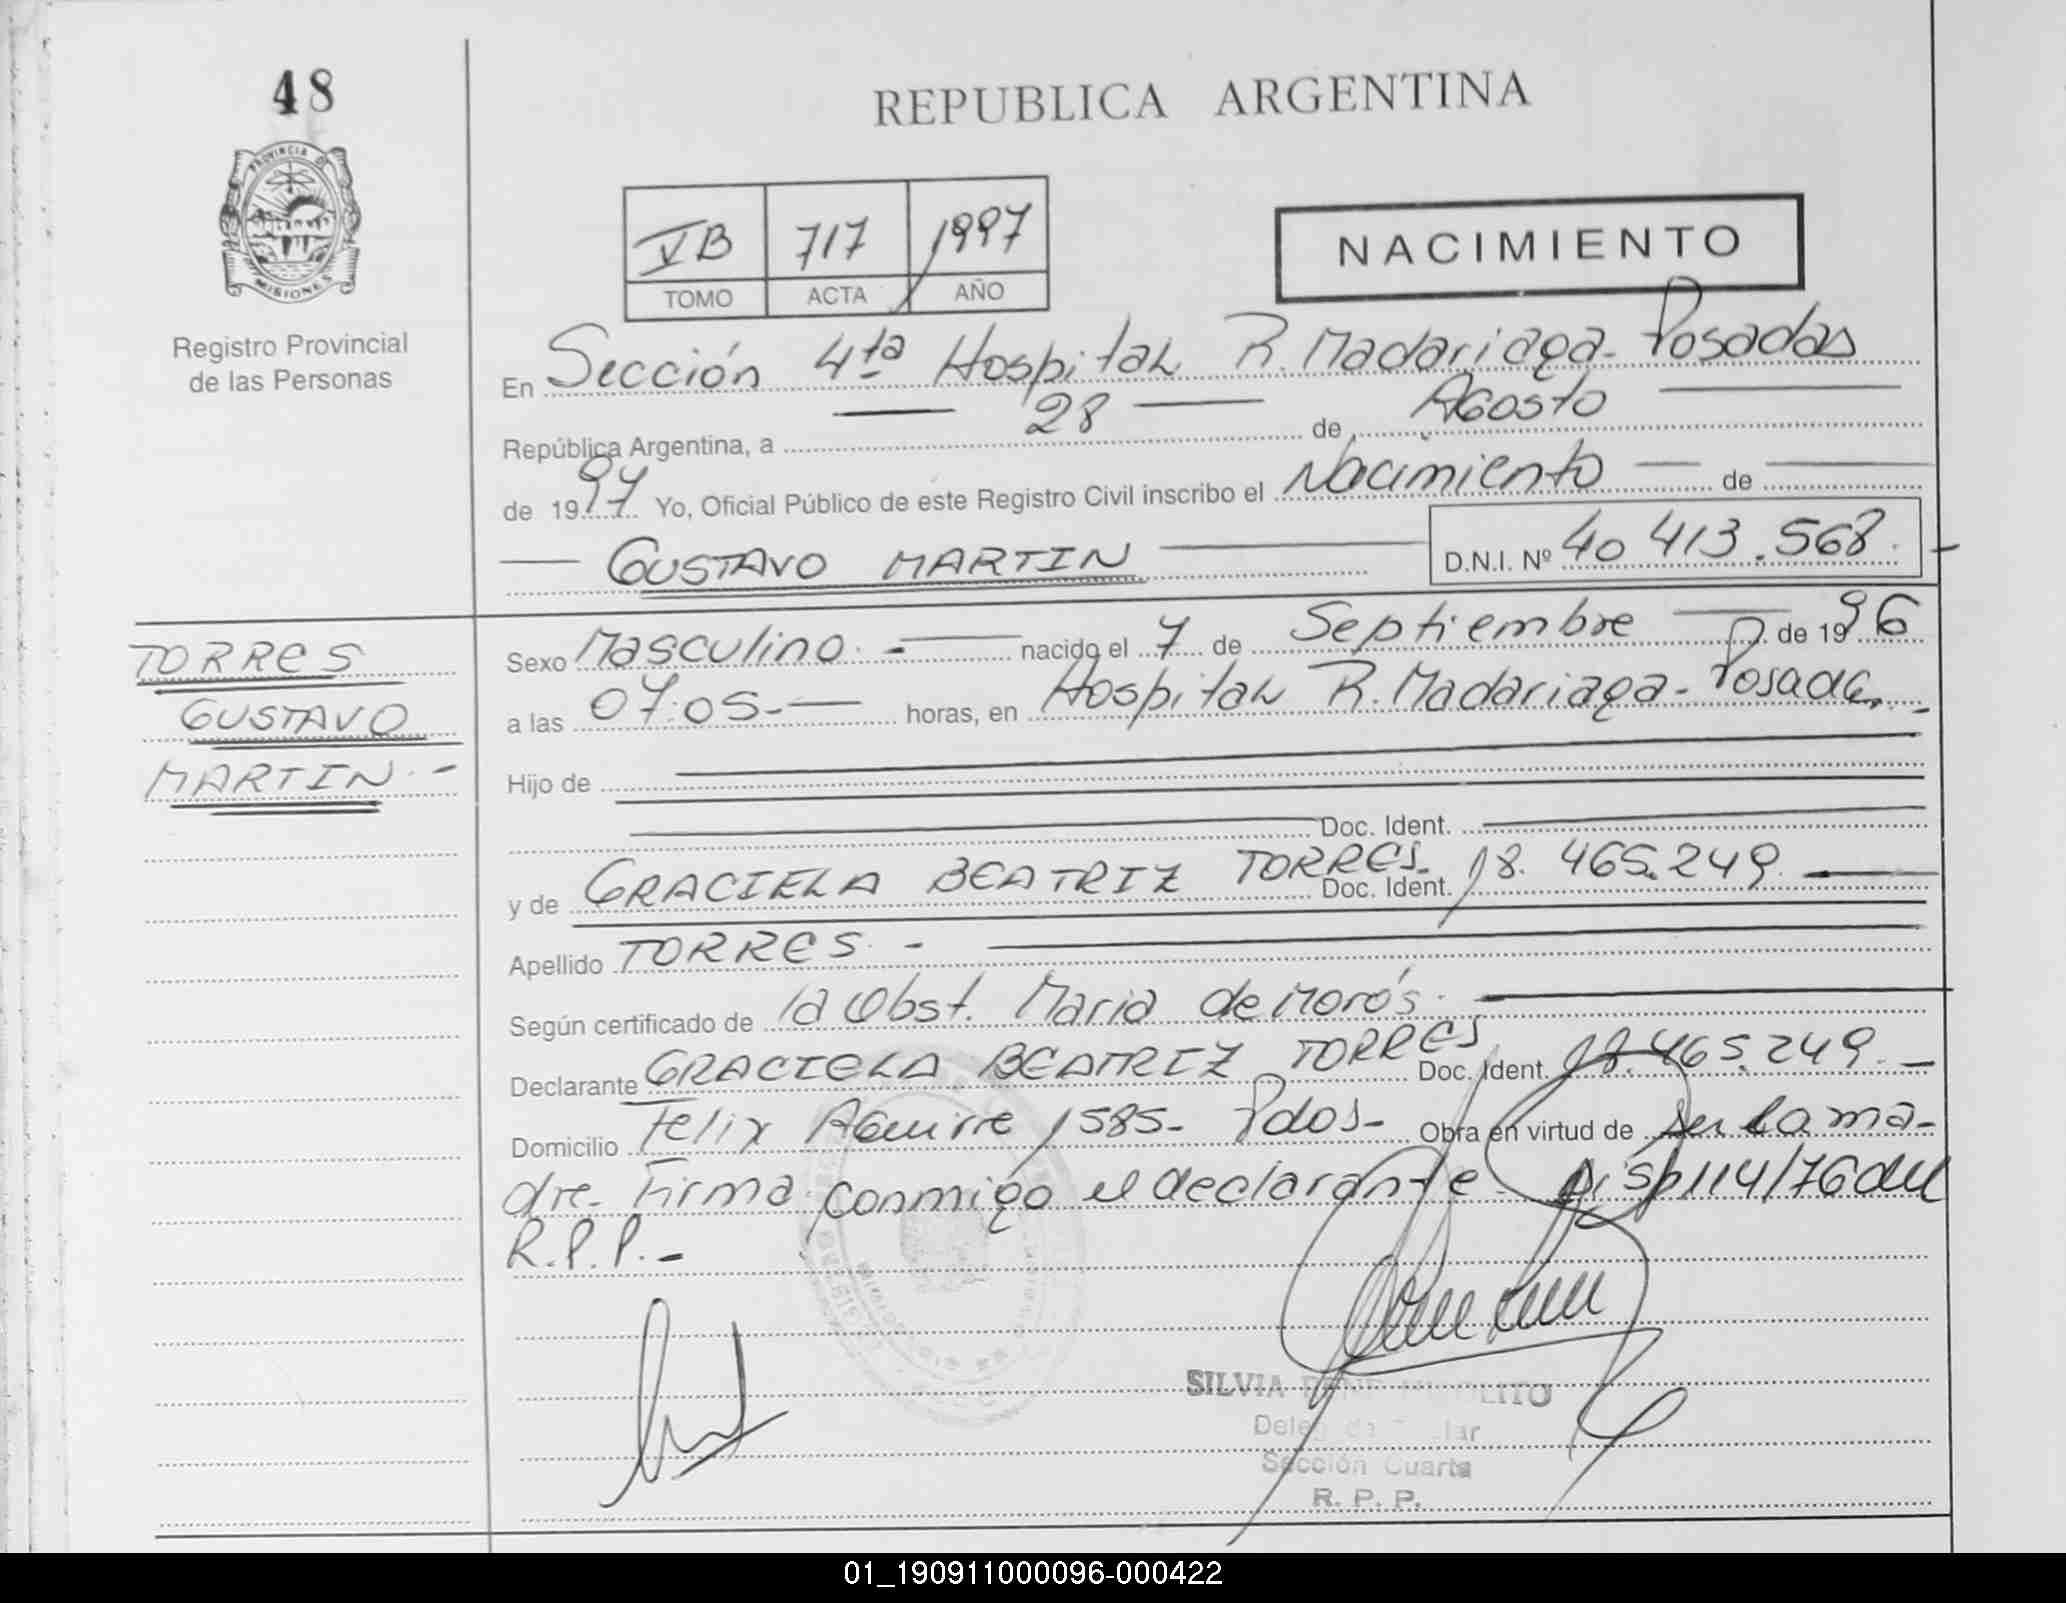 48
REPUBLICA ARGENTINA
PROVINCIA DE
MISIONES
Registro Provincial
de las Personas
VB 717 1997
TOMO ACTA AÑO
NACIMIENTO
En Sección 4ta Hospital R. Madariaga - Posadas
República Argentina, a 28 de Agosto
de 1997 Yo, Oficial Público de este Registro Civil inscribo el Nacimiento de
GUSTAVO MARTIN D.N.I. Nº 40 413.568.
TORRES
GUSTAVO
MARTIN.-
Sexo Masculino.- nacido el 7 de Septiembre de 1996
a las 07:05.- horas, en Hospital R. Madariaga - Posadas.-
Hijo de
Doc. Ident.
y de GRACIELA BEATRIZ TORRES. Doc. Ident. 18.465.249.
Apellido TORRES.-
Según certificado de la Obst. Maria de Morós.
Declarante GRACIELA BEATRIZ TORRES Doc. Ident. 18.465.249.-
Domicilio Felix Aguirre 1585- Pdas- Obra en virtud de ser la ma-
dre- Firma conmigo el declarante- Disp 114/76 del
R.P.P.-
SILVIA
Sección Cuarta
R. P. P.
01_190911000096-000422